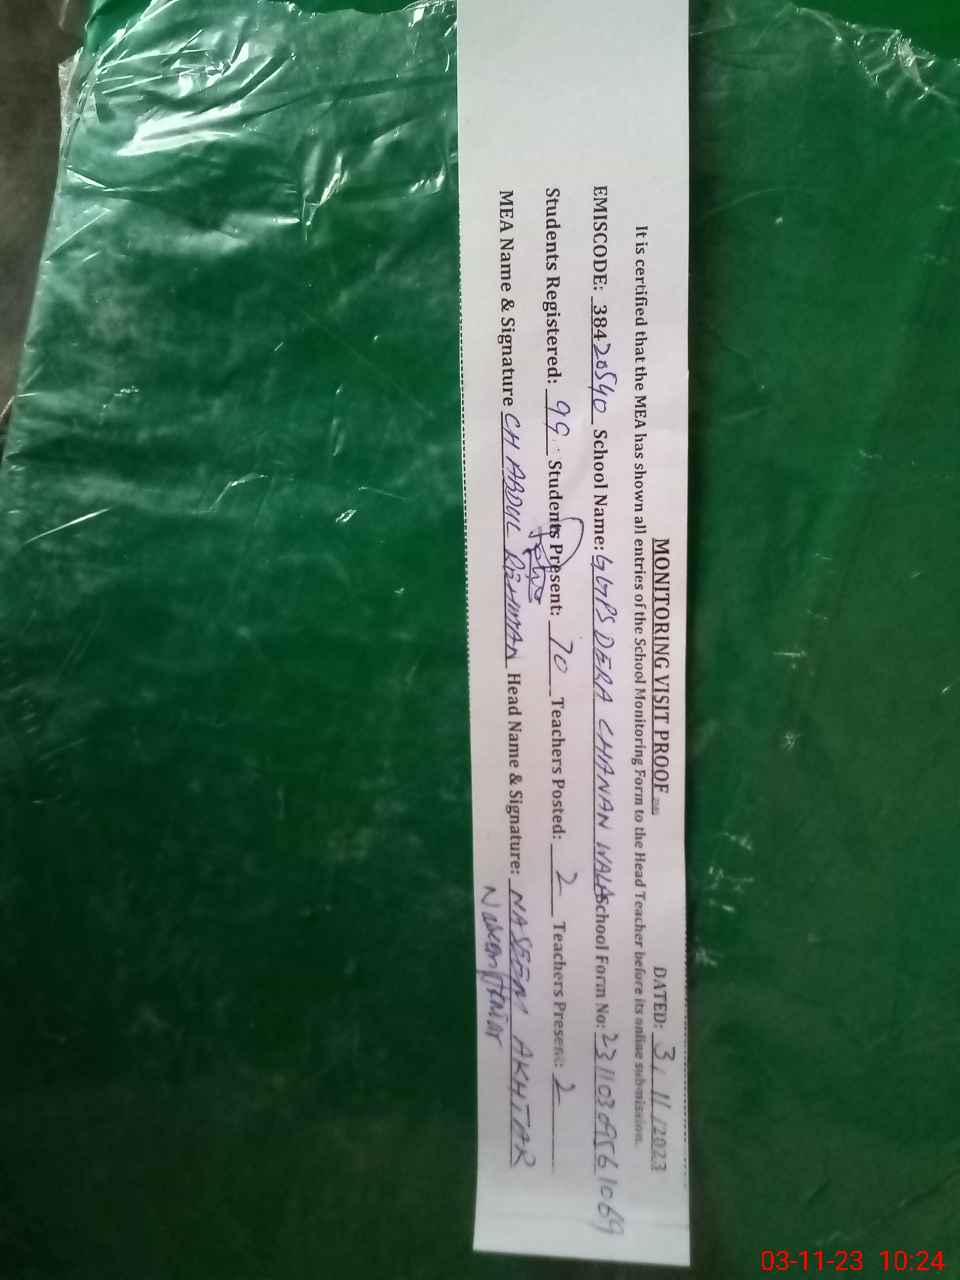 MONITORING VISIT PROOF DATED: 3/11/2023
It is certified that the MEA has shown all entries of the School Monitoring Form to the Head Teacher before its online submission.
EMISCODE: 38420540 School Name: GGPS DERA CHANAN WALA School Form No: 23110309561069
Students Registered: 99 Students Present: 70 Teachers Posted: 2 Teachers Present: 2
MEA Name & Signature CH ABDUL REHMAN Head Name & Signature: NASEEM AKHTAR
03-11-23 10:24